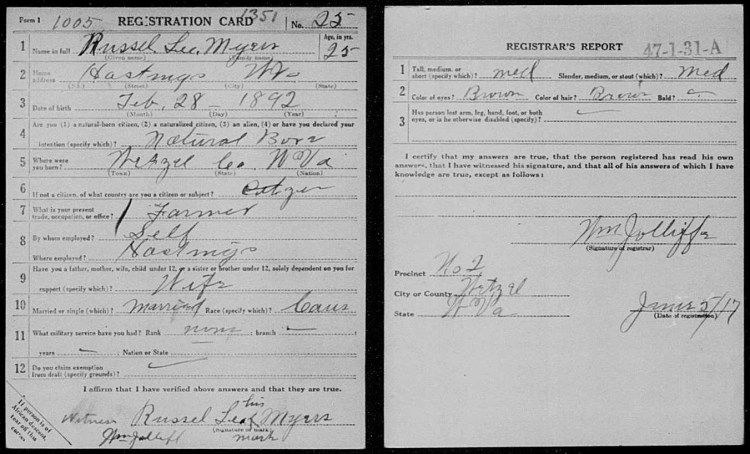 Form 1 1005 REGISTRATION CARD 1351 No. 25
1 Name in full Russel Lee Myers Age, in yrs. 25
(Given name) (Family name)
2 Home address Hastings W Va
(P.O.) (State)
3 Date of birth Feb. 28 - 1892
(Month) (Day) (Year)
4 Are you (1) a natural-born citizen, (2) a naturalized citizen, (3) an alien, (4) or have you declared your
intention (specify which)? Natural Born
5 Where were you born? Wetzel Co W Va
(Town) (State) (Nation)
6 If not a citizen, of what country are you a citizen or subject? Citizen
7 What is your present trade, occupation, or office? Farmer
8 By whom employed? Self
Where employed? Hastings
9 Have you a father, mother, wife, child under 12, or a sister or brother under 12, solely dependent on you for
support (specify which)? Wife
10 Married or single (which)? Married Race (specify which)? Caus
11 What military service have you had? Rank none ; branch —
years ; Nation or State
12 Do you claim exemption from draft (specify grounds)?
I affirm that I have verified above answers and that they are true.
If person is of African descent, tear off this corner.
his
Witness Russel Lee X Myers
(Signature or mark)
Wm Jolliff mark
REGISTRAR'S REPORT 47-1-31-A
1 Tall, medium, or short (specify which)? med Slender, medium, or stout (which)? Med
2 Color of eyes? Brown Color of hair? Brown Bald?
3 Has person lost arm, leg, hand, foot, or both
eyes, or is he otherwise disabled (specify)?
I certify that my answers are true, that the person registered has read his own
answers, that I have witnessed his signature, and that all of his answers of which I have
knowledge are true, except as follows:
Wm Jolliffe
(Signature of registrar)
Precinct No 2
City or County Wetzel
State W Va
June 5/17
(Date of registration)